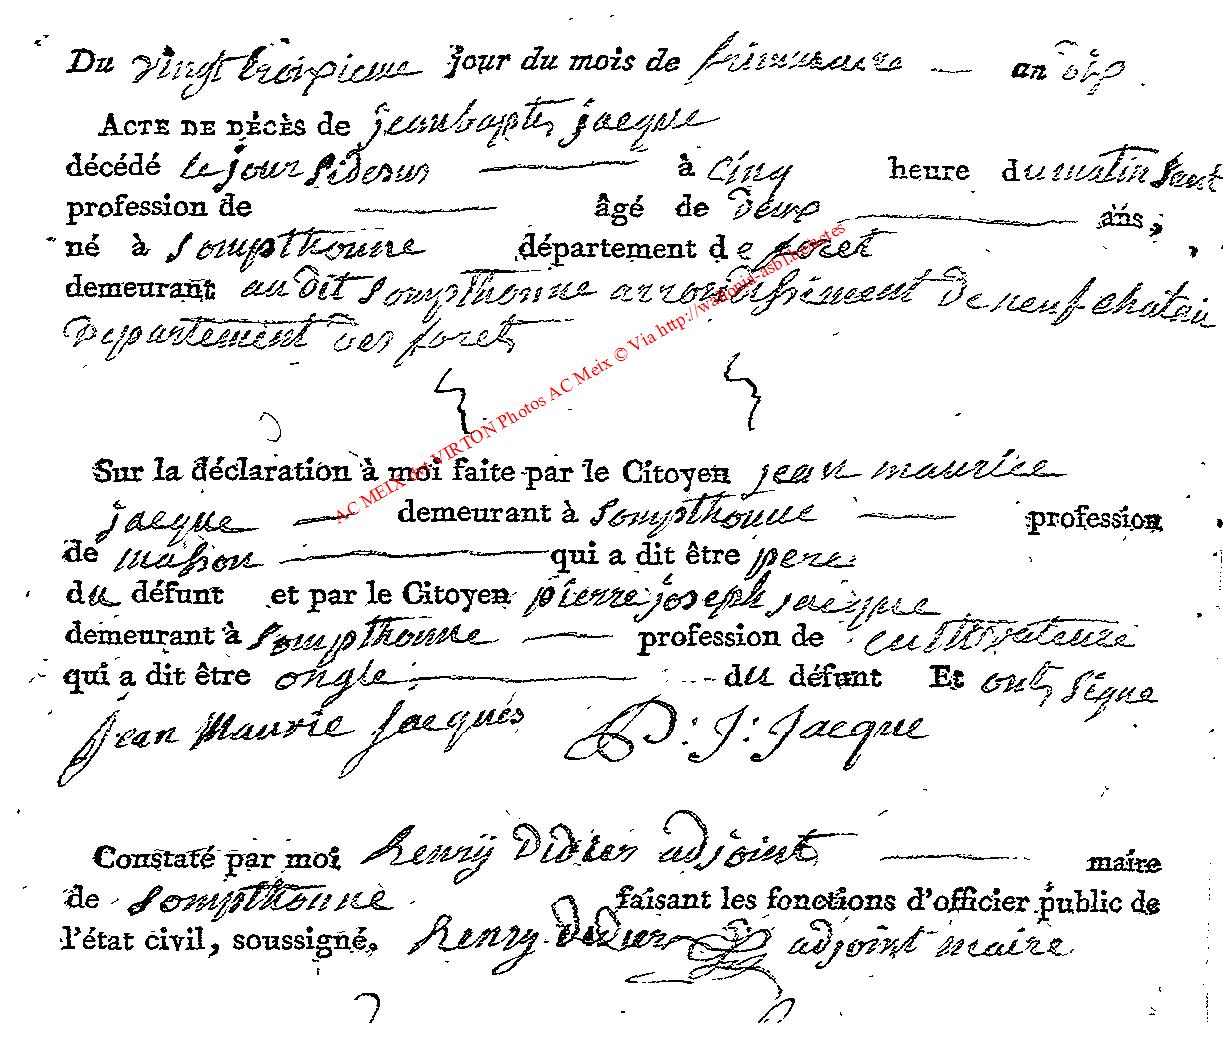 Du vingt troixieme jour du mois de frimmaire — an dix
ACTE DE DÉCÈS de jeanbaptis jacque
décédé le jour sidesus — à cinq heure du matin
profession de — âgé de deux — ans,
né à sompthonne département de foret
demeurant au dit sompthonne arrondissement de neufchateau
Departement des forets
Sur la déclaration à moi faite par le Citoyen jean maurice
jacque — demeurant à sompthonne — profession
de masson — qui a dit être pere
du défunt et par le Citoyen pierre joseph jacque
demeurant à sompthonne — profession de cultivateure
qui a dit être ongle — du défunt Et onts signe
jean Maurie jacques P: J: Jacque
Constaté par moi henry Didier adjoint — maire
de sompthonne faisant les fonctions d'officier public de
l'état civil, soussigné, henry didier adjoint maire
AC MEIX dvt VIRTON Photos AC Meix © Via http://wallonia-asbl.be/notes